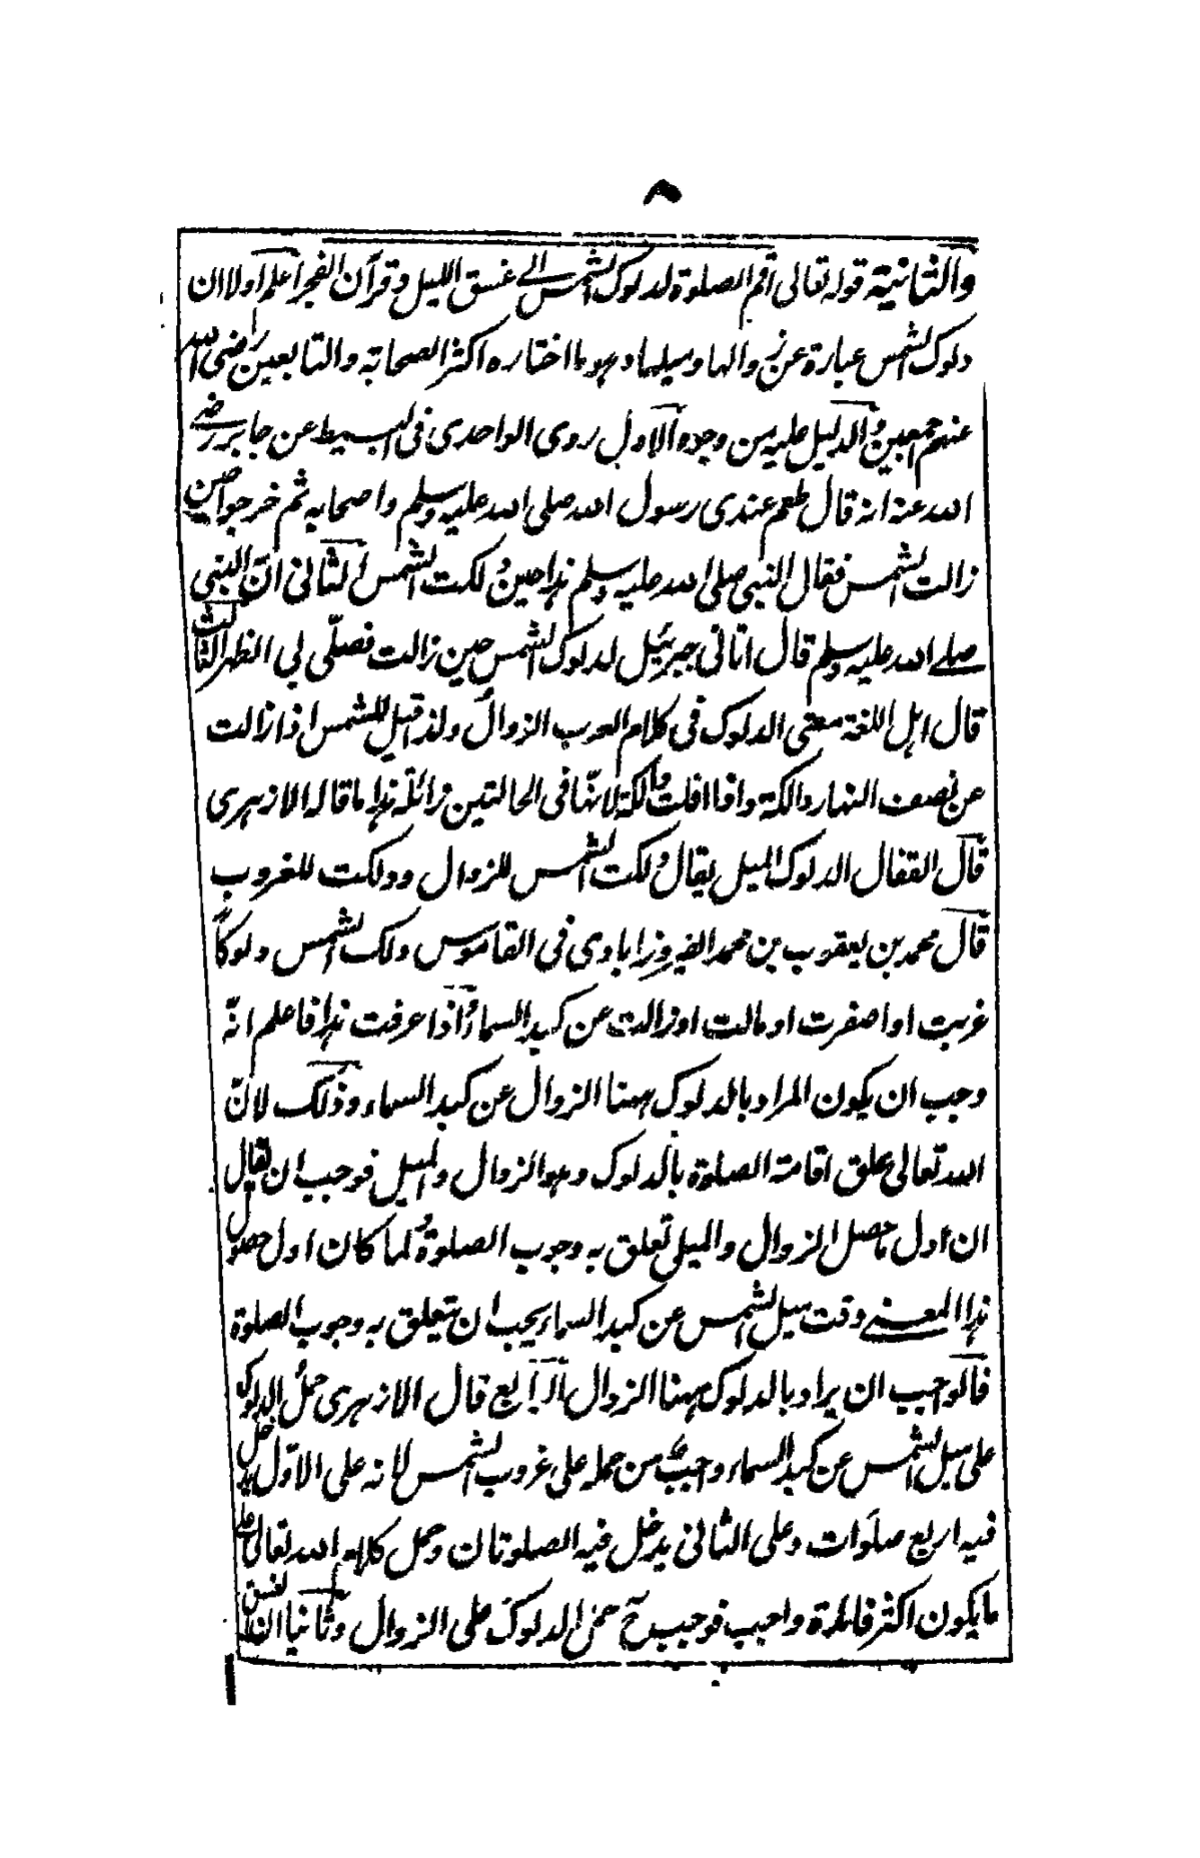 ٨
والثانية قوله تعالى اقم الصلوة لدلوك الشمس الى غسق الليل وقرآن الفجر اعلم اولا ان
دلوك الشمس عبارة عن زوالها وميلها وهو ما اختاره اكثر الصحابة والتابعين رضى الله
عنهم اجمعين والدليل عليه من وجوه الاول روى الواحدى فى البسيط عن جابر رضے
الله عنه انه قال طعم عندى رسول الله صلى الله عليه وسلم واصحابه ثم خرجوا حين
زالت الشمس فقال النبى صلى الله عليه وسلم هذا حين دلكت الشمس الثانى انّ النبى
صلے الله عليه وسلم قال اتانى جبرئيل لدلوك الشمس حين زالت فصلّى بى الظهر الثالث
قال اهل اللغة معنى الدلوك فى كلام العرب الزوال ولذا قيل للشمس اذا زالت
عن نصف النهار دالكة واذا افلت دالكة لانّها فى الحالتين زائلة هذا ما قاله الازهرى
قال القفال الدلوك الميل يقال دلكت الشمس للزوال ودلكت للغروب
قال محمد بن يعقوب بن محمد الفيروزابادى فى القاموس دلك الشمس دلوكاً
غربت او اصفرت او مالت او زالت عن كبد السماء واذا عرفت هذا فاعلم انّه
وجب ان يكون المراد بالدلوك ههنا الزوال عن كبد السماء وذلك لانّ
الله تعالى علق اقامة الصلوة بالدلوك وهو الزوال والميل فوجب ان يقال
ان اول ما حصل الزوال والميل تعلق به وجوب الصلوة ولما كان اول حصول
هذا المعنے وقت ميل الشمس عن كبد السماء يجب ان يتعلق به وجوب الصلوة
فالواجب ان يراد بالدلوك ههنا الزوال الرابع قال الازهرى حمل الدلوك
على ميل الشمس عن كبد السماء واجب من حمله على غروب الشمس لانه على الاوّل يدخل
فيه اربع صلوات وعلى الثانى يدخل فيه الصلوتان وحمل كلام الله تعالى على
ما يكون اكثر فائدة واجب فوجب ح حمل الدلوك على الزوال وثانيا ان لغسق